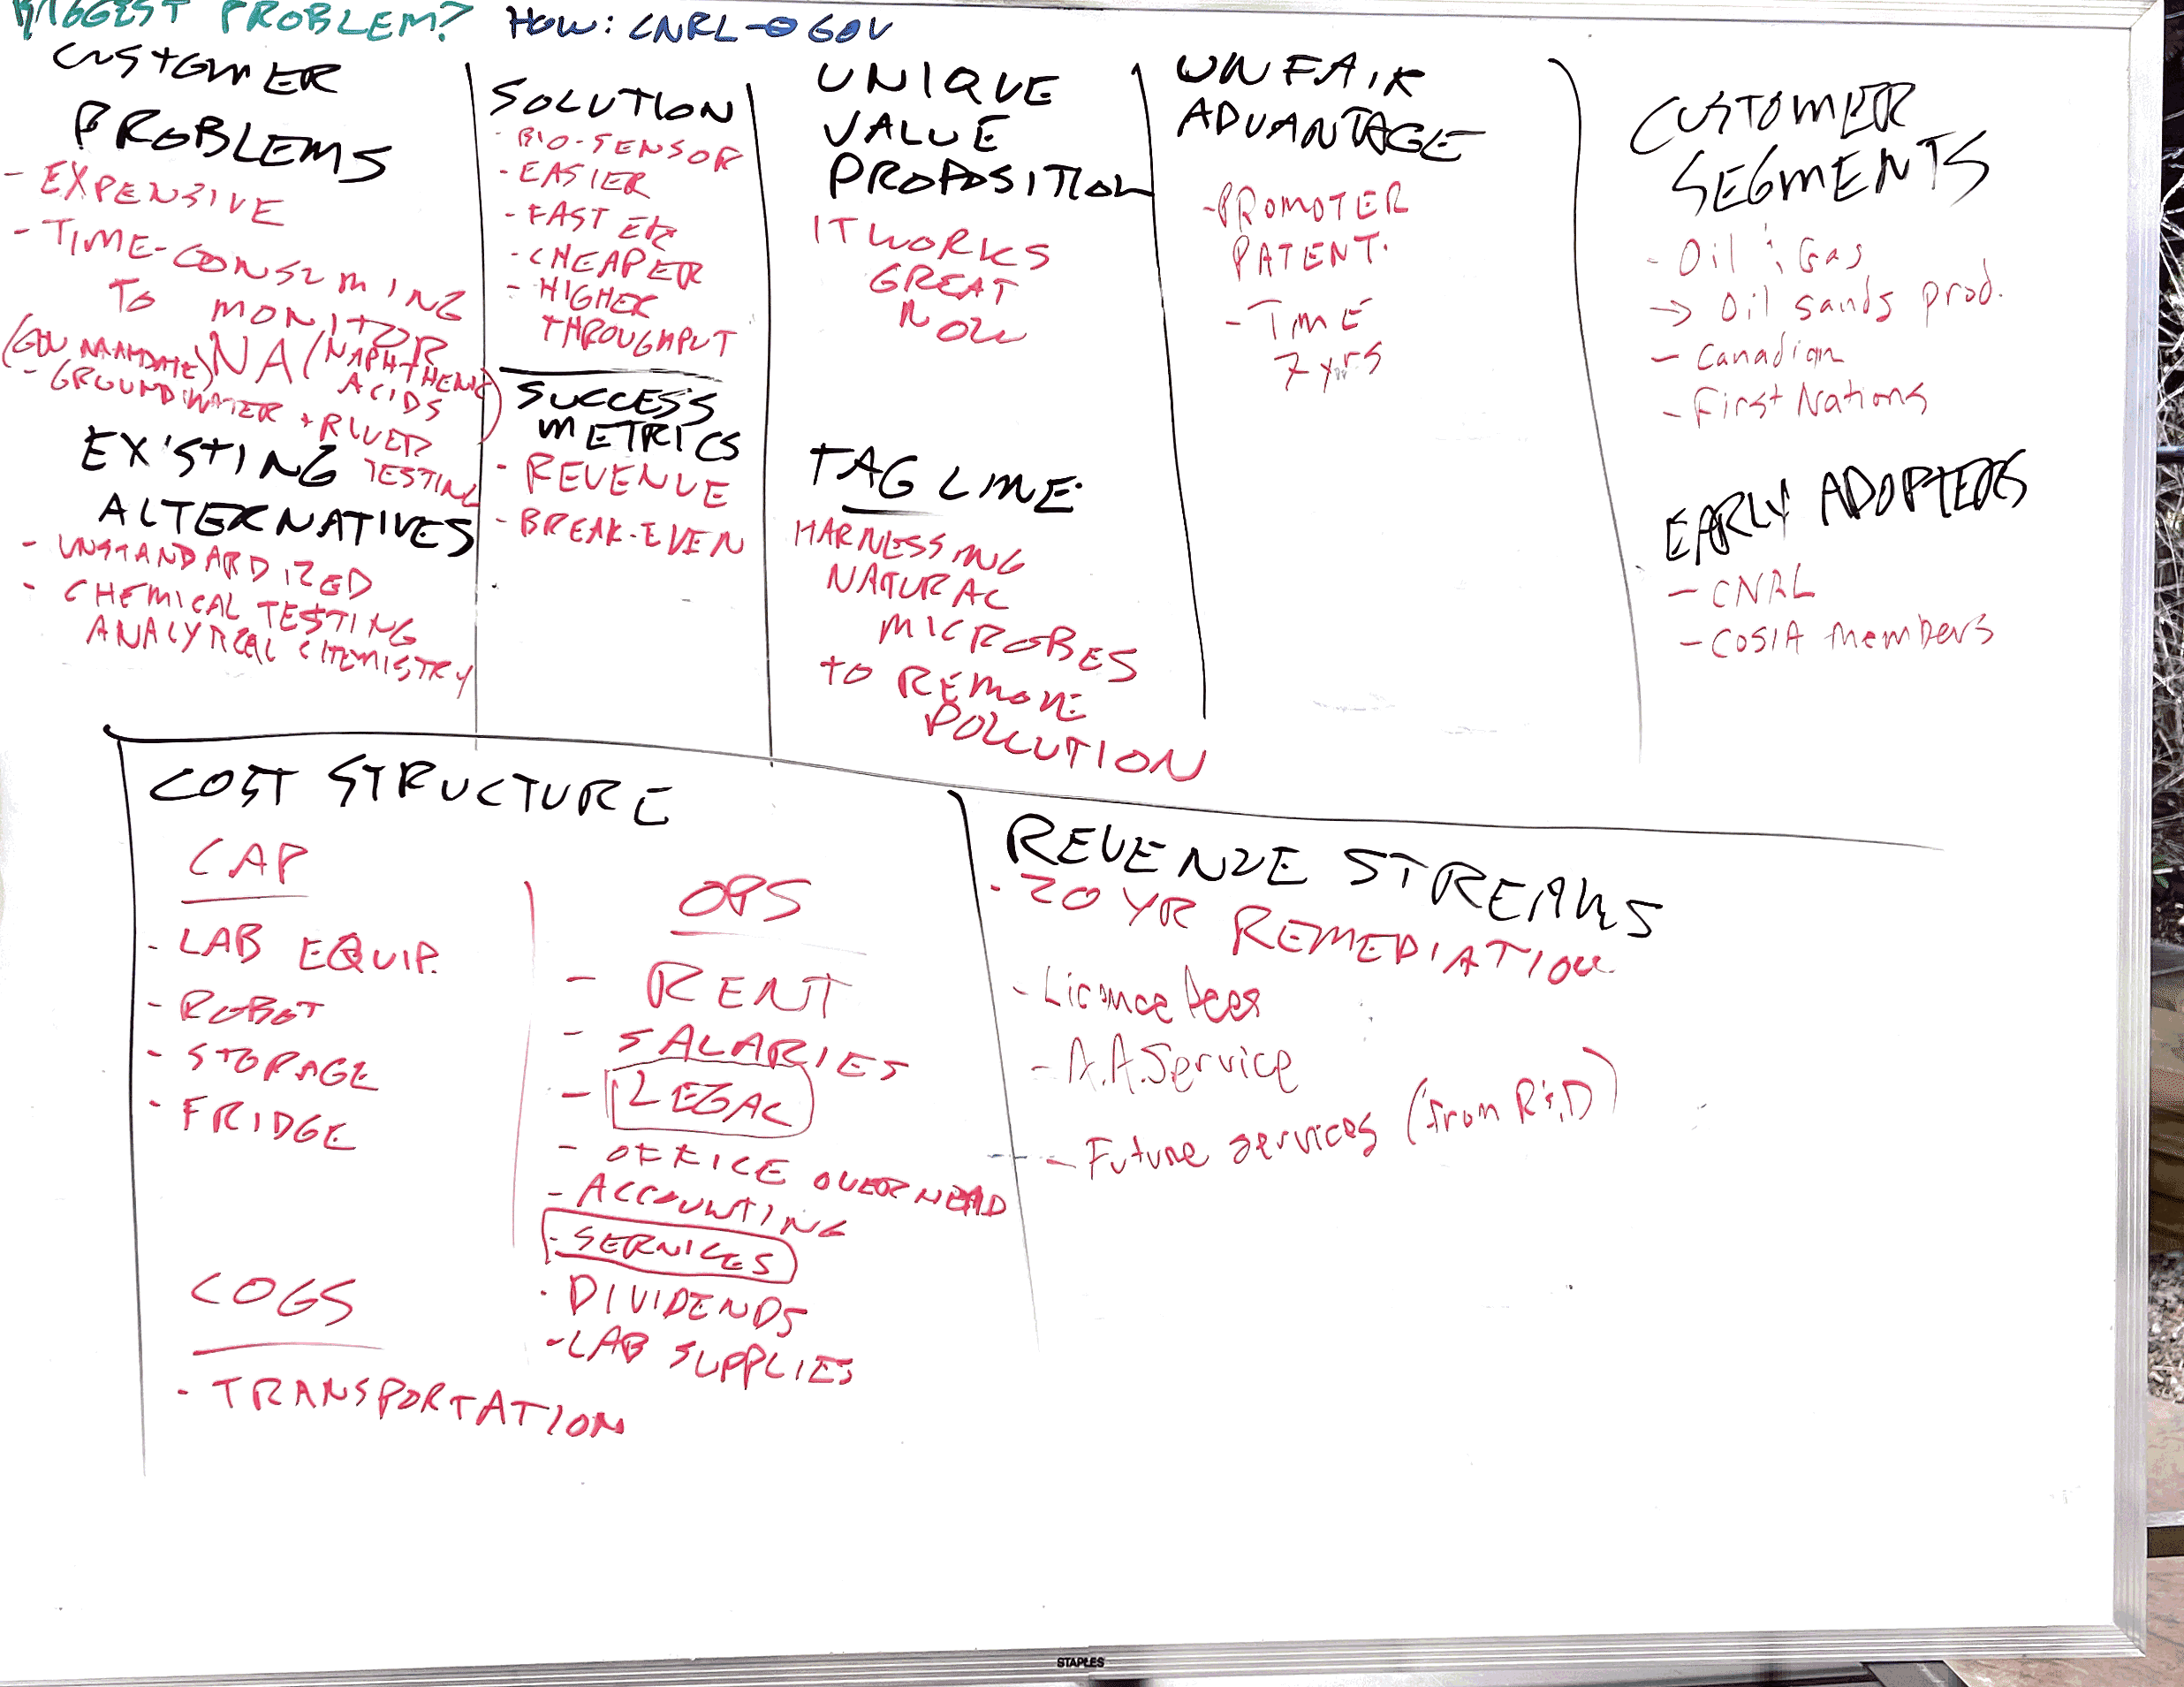 BIGGEST PROBLEM? HOW: CNRL → GOV
CUSTOMER
PROBLEMS
- EXPENSIVE
- TIME-CONSUMING
TO MONITOR
(GOV MANDATE) NA (NAPHTHENIC
ACIDS)
- GROUNDWATER + RIVER
TESTING
EXISTING
ALTERNATIVES
- UNSTANDARDIZED
- CHEMICAL TESTING
ANALYTICAL CHEMISTRY
SOLUTION
- BIO-SENSOR
- EASIER
- FASTER
- CHEAPER
- HIGHER
THROUGHPUT
SUCCESS
METRICS
- REVENUE
- BREAK-EVEN
UNIQUE
VALUE
PROPOSITION
IT WORKS
GREAT
NOW
TAG LINE:
HARNESSING
NATURAL
MICROBES
TO REMOVE
POLLUTION
UNFAIR
ADVANTAGE
- PROMOTER
PATENT.
- TIME
7 yrs
CUSTOMER
SEGMENTS
- Oil & Gas
→ Oil sands prod.
- Canadian
- First Nations
EARLY ADOPTERS
- CNRL
- COSIA members
COST STRUCTURE
CAP
- LAB EQUIP.
- ROBOT
- STORAGE
- FRIDGE
COGS
- TRANSPORTATION
OPS
- RENT
- SALARIES
- LEGAL
- OFFICE OVERHEAD
- ACCOUNTING
- SERVICES
- DIVIDENDS
- LAB SUPPLIES
REVENUE STREAMS
- 20 YR REMEDIATION
- Licence fees
- A.A.Service
- Future services (from R&D)
STAPLES